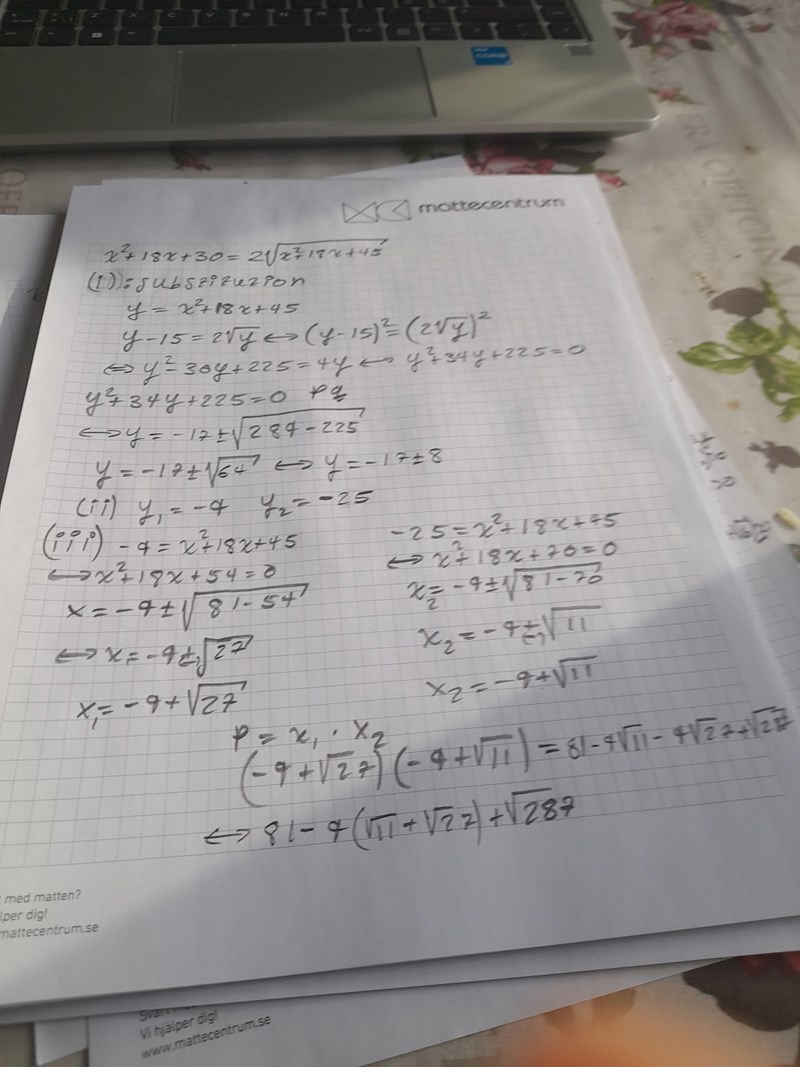 mattecentrum
x²+18x+30=2√x²+18x+45
(1):substizuzion
y=x²+18x+45
y-15=2√y ↔ (y-15)²=(2√y)²
⇔ y²-30y+225=4y ↔ y²+34y+225=0
y²+34y+225=0 pq
↔ y=-17±√289-225
y=-17±√64 ↔ y=-17±8
(ii) y₁=-9 y₂=-25
(iii) -9=x²+18x+45
↔ x²+18x+54=0
x=-9±√81-54
↔ x=-9±√27
x₁=-9+√27
-25=x²+18x+45
↔ x²+18x+70=0
x₂=-9±√81-70
x₂=-9±√11
x₂=-9+√11
P=x₁·x₂
(-9+√27)(-9+√11)=81-9√11-9√27+√287
↔ 81-9(√11+√27)+√287
med matten?
lper dig!
mattecentrum.se
Vi hjälper dig!
www.mattecentrum.se